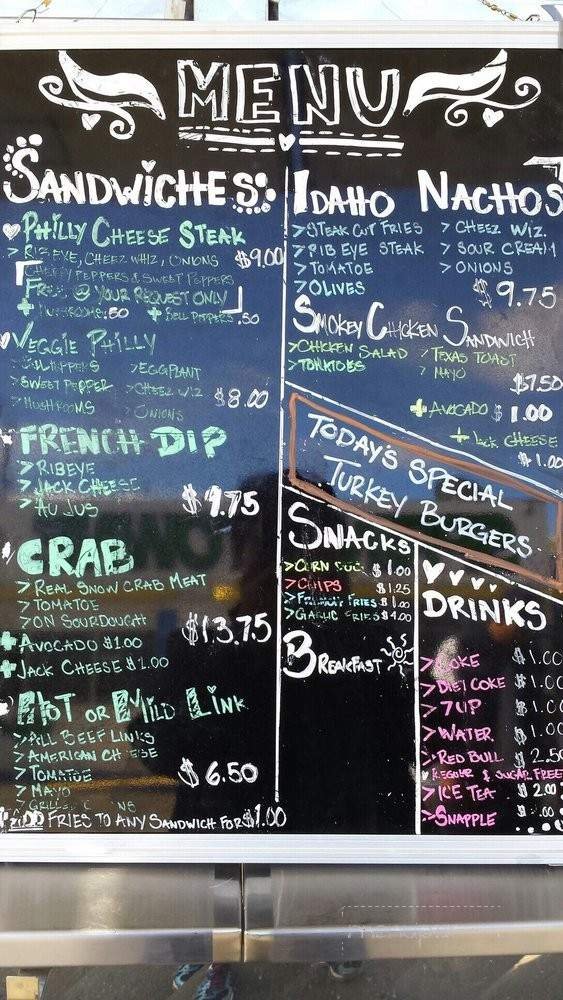 MENU
SANDWICHES
PHILLY CHEESE STEAK
> RIBEYE, CHEEZ WHIZ, ONIONS $9.00
CHERRY PEPPERS & SWEET PEPPERS
FREE @ YOUR REQUEST ONLY
+ MUSHROOMS .50 + BELL PEPPERS .50
VEGGIE PHILLY
> EGGPLANT
> SWEET PEPPER > CHEEZ WIZ $8.00
> MUSHROOMS > ONIONS
FRENCH DIP
> RIBEYE
> JACK CHEESE
> AU JUS $9.75
CRAB
> REAL SNOW CRAB MEAT
> TOMATOE
> ON SOURDOUGH $13.75
+ AVOCADO $1.00
+ JACK CHEESE $1.00
HOT OR MILD LINK
> ALL BEEF LINKS
> AMERICAN CHEESE
> TOMATOE $6.50
> MAYO
ADD FRIES TO ANY SANDWICH FOR $1.00
IDAHO NACHOS
> STEAK CUT FRIES > CHEEZ WIZ.
> RIB EYE STEAK > SOUR CREAM
> TOMATOE > ONIONS
> OLIVES $9.75
SMOKEY CHICKEN SANDWICH
> CHICKEN SALAD > TEXAS TOAST
> TOMATOES > MAYO
$7.50
+ AVOCADO $1.00
+ JACK CHEESE
$1.00
TODAY'S SPECIAL
TURKEY BURGERS
SNACKS
> CORN DOG $1.00
> CHIPS $1.25
> FRIES $1.00
> GARLIC FRIES $4.00
BREAKFAST
DRINKS
> COKE $1.00
> DIET COKE $1.00
> 7UP $1.00
> WATER $1.00
> RED BULL $2.50
REGULAR & SUGAR FREE
> ICE TEA $2.00
> SNAPPLE